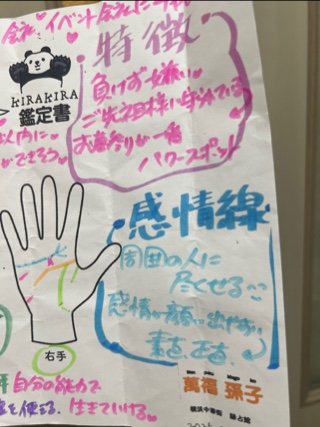 会社・イベント会社に
特徴
負けず嫌い♡
ご先祖様に守られている
お墓参りが一番
パワースポット
KIRAKIRA
鑑定書
以内に
ができそう♡
感情線
周囲の人に
尽くせる
感情が顔に出やすい
素直、正直
右手
自分の能力で
を使える、生きていける♡
萬福 孫子
横浜中華街 鑑占館